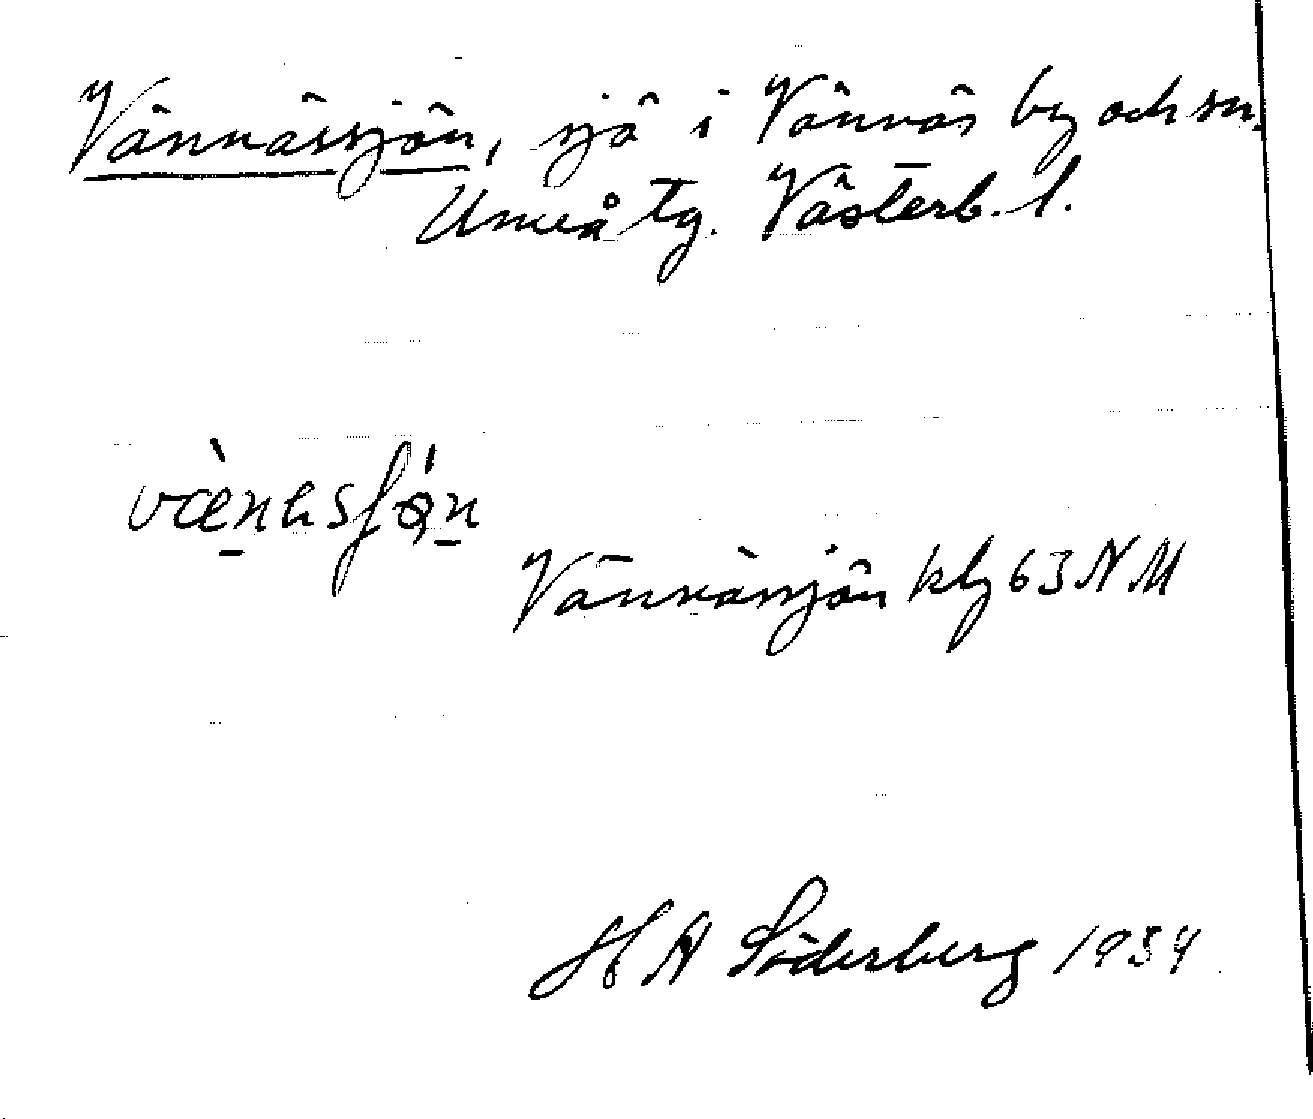 Vännässjön, sjö i Vännäs by och sn.
Umeå tg. Västerb. l.
Vännässjön kbg 63 NM
H A Söderberg 1934